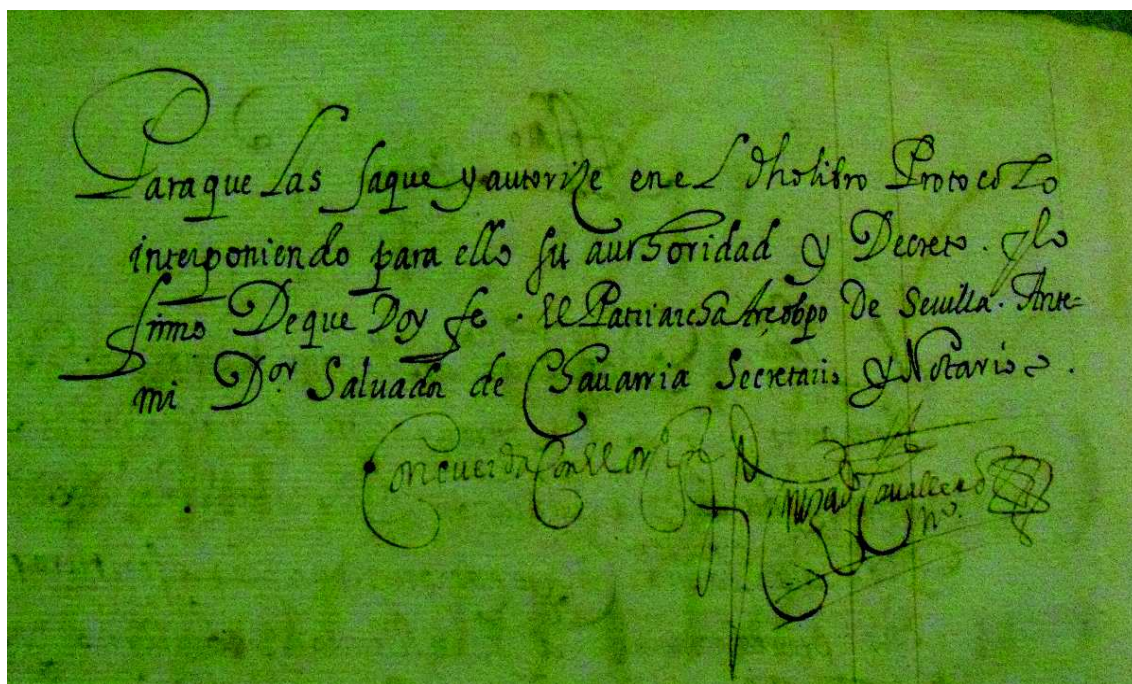 Para que las saque y autorize en el dho libro Protocolo
interponiendo para ello su authoridad y Decreto. y lo
firmo De que Doy fe. El Patriarcha Arçobpo de Seuilla. Ante=
mi Dor Saluador de Chauarria Secretario y Notario.
Concuerda Con El orig
Cauallero
no.